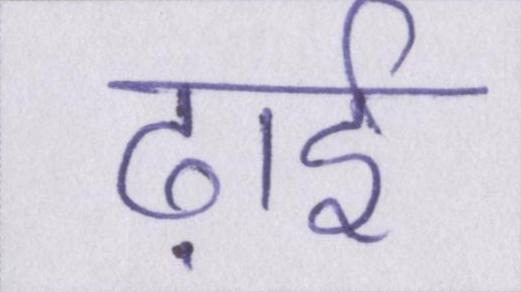 ढ़ाई